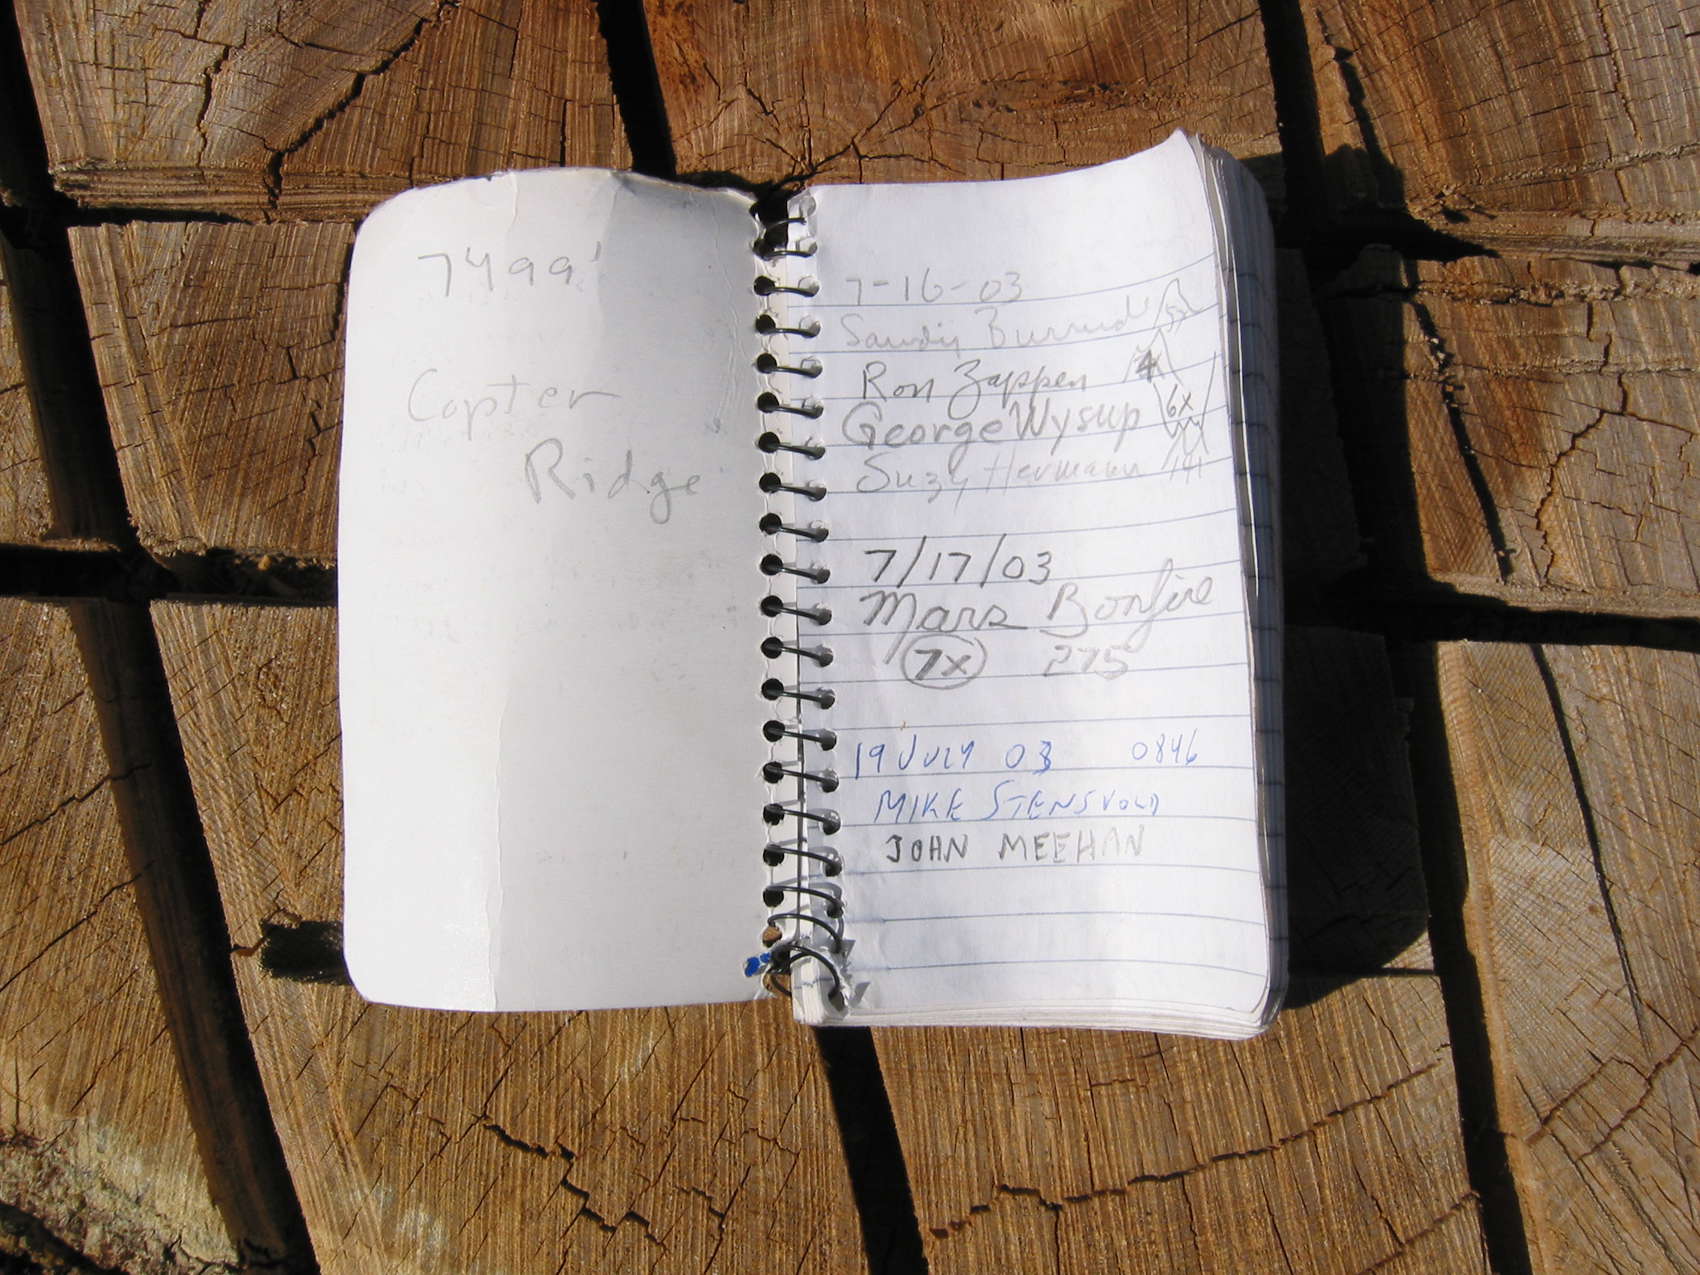 7499'
Copter
Ridge
7-16-03
Sandy
Ron Zappen
George Wysup 6x
Suzy Hermann
7/17/03
Mars Bonfire
7x 275
19 JULY 03 0846
MIKE STENSVOLD
JOHN MEEHAN